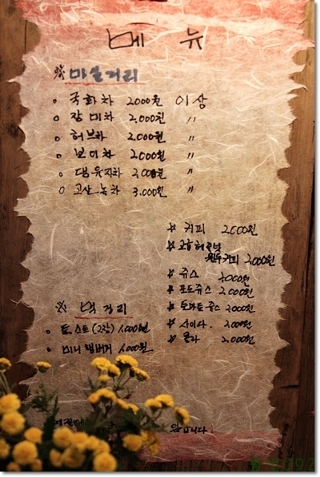 메뉴
※ 마실거리
○ 국화차 2,000원 이상
○ 장미차 2,000원 〃
○ 허브차 2,000원 〃
○ 보이차 2,000원 〃
○ 댕유지차 2,000원 〃
○ 고산녹차 3,000원 〃
☆ 커피 2,000원
원두커피 2,000원
☆ 쥬스 2,000원
☆ 포도쥬스 2,000원
☆ 토마토쥬스 2,000원
☆ 사이다 2,000원
☆ 콜라 2,000원
※ 먹거리
○ 토스트(2장) 1,000원
○ 미니햄버거 1,000원